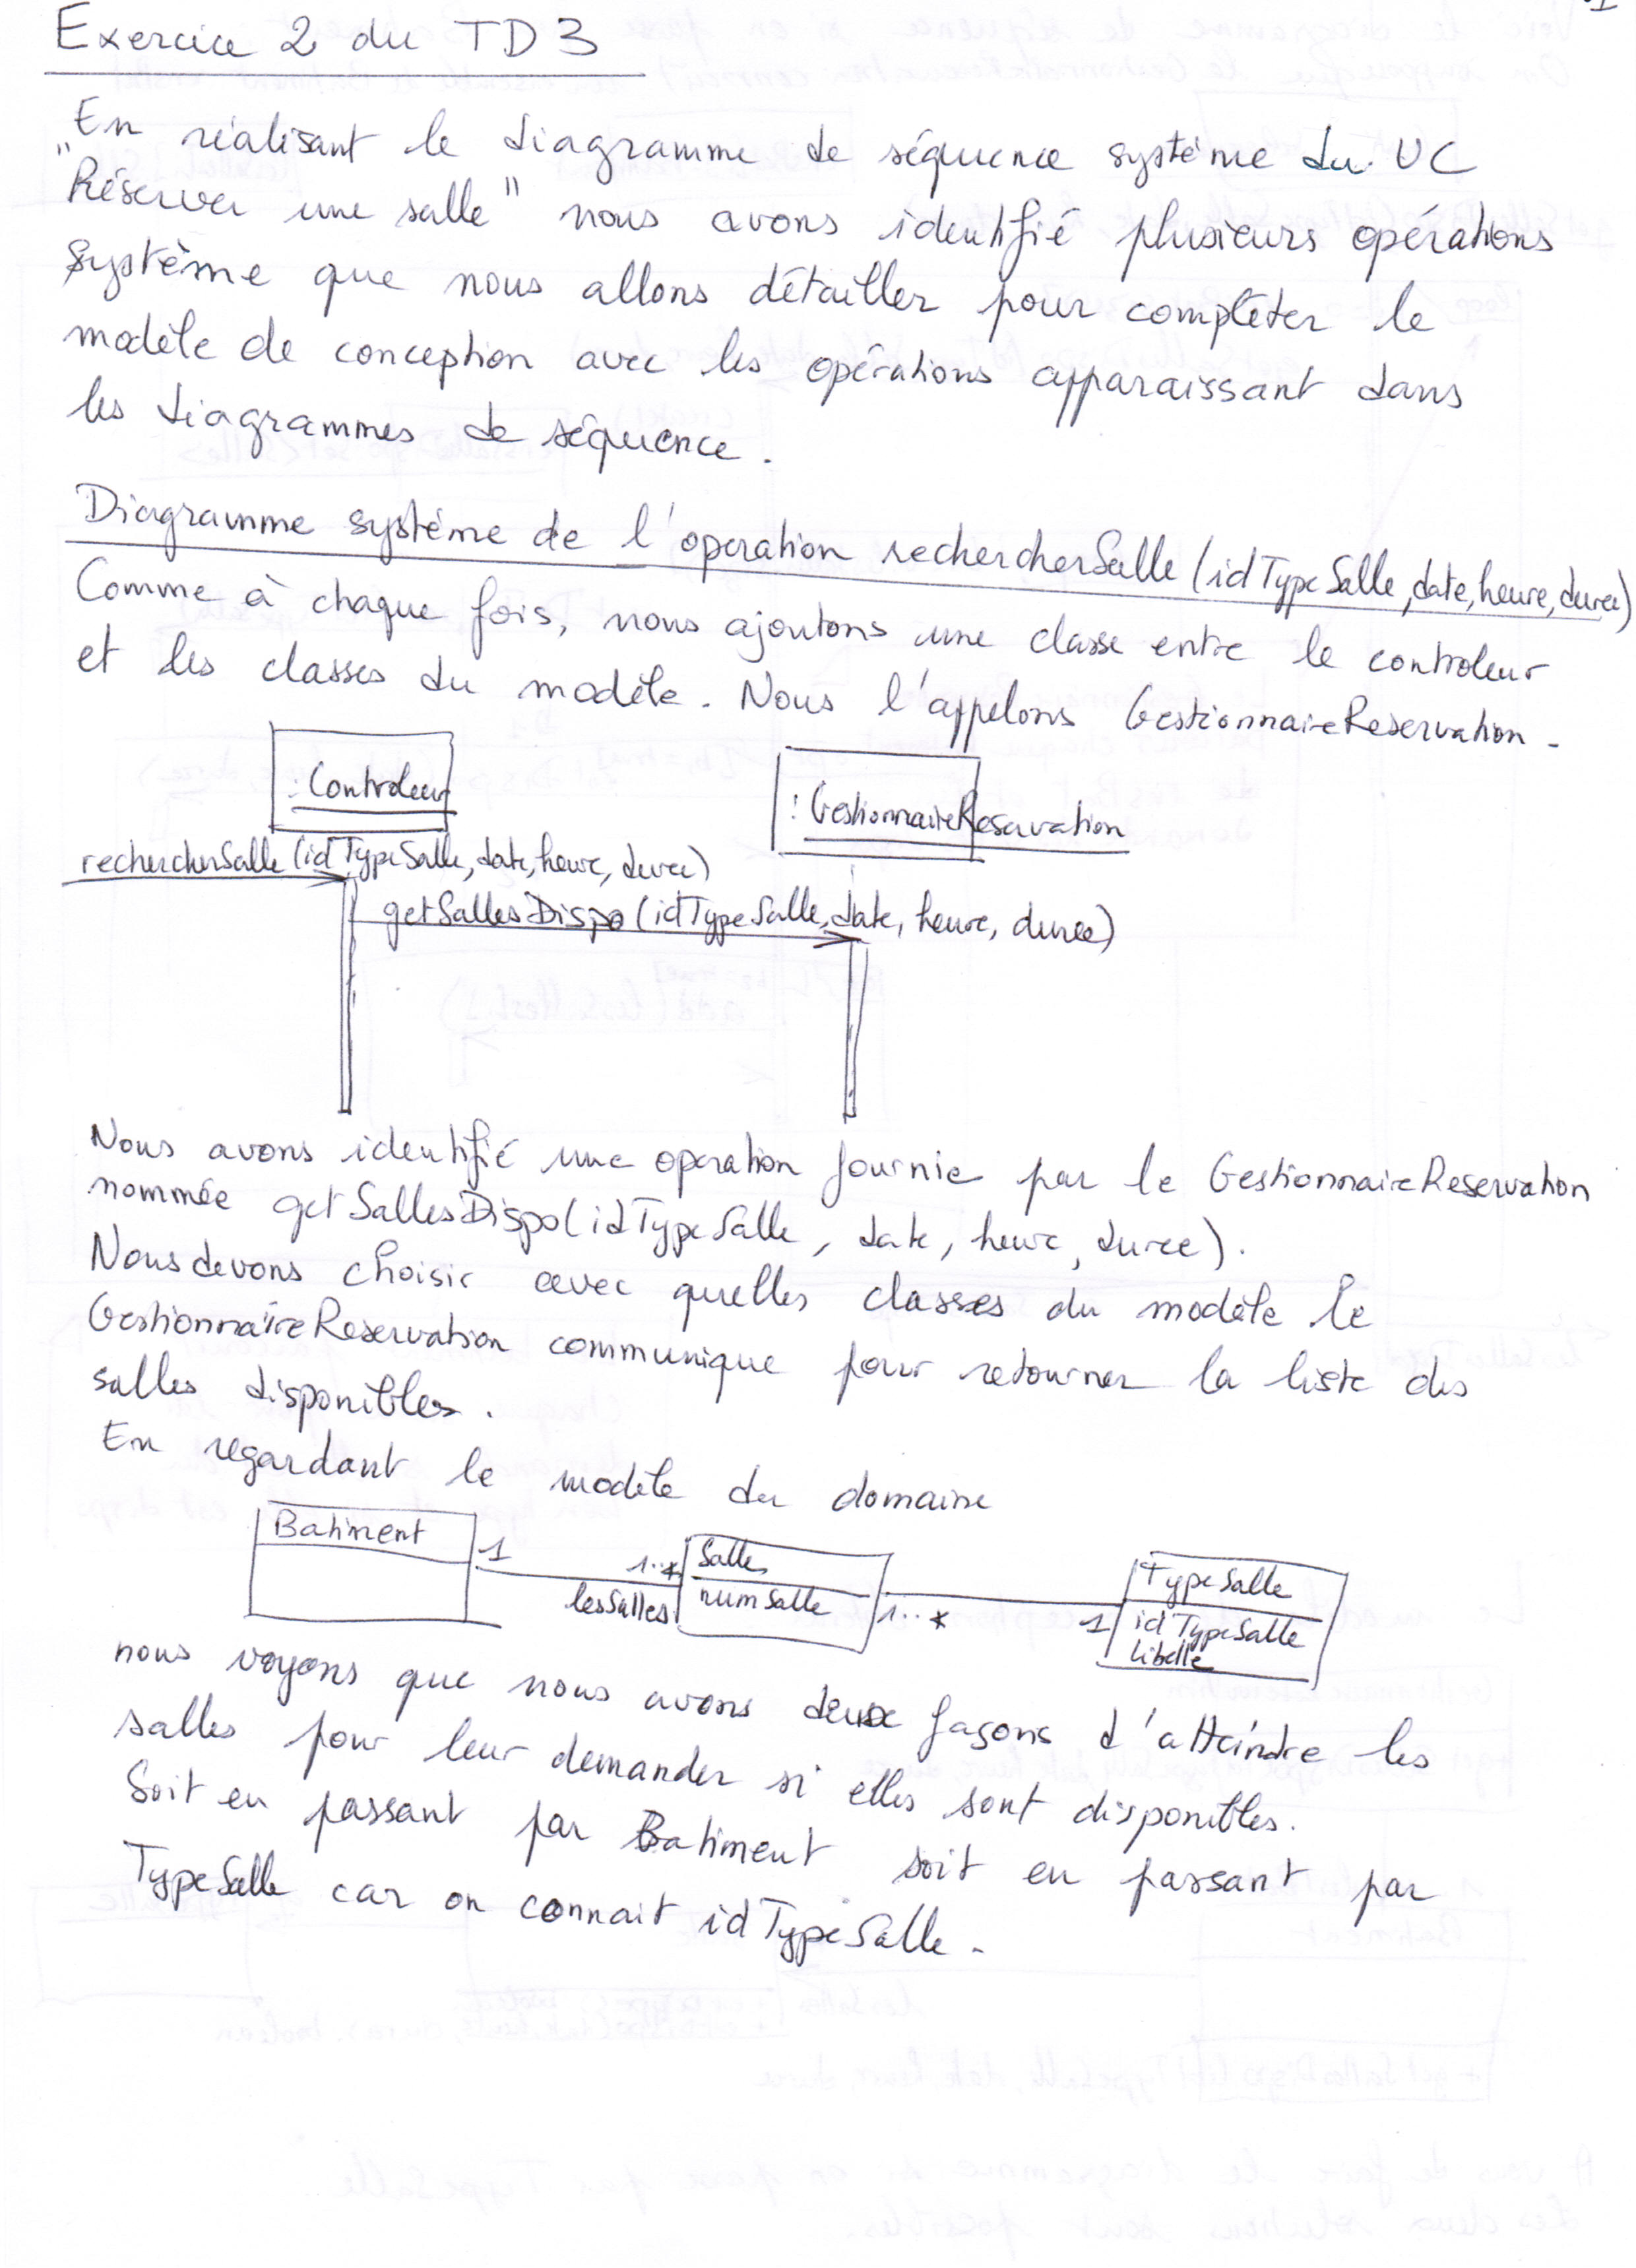 1
Exercice 2 du TD3
En réalisant le diagramme de séquence système du UC
"Réserver une salle" nous avons identifié plusieurs opérations
système que nous allons détailler pour compléter le
modèle de conception avec les opérations apparaissant dans
les diagrammes de séquence.
Diagramme système de l'operation rechercherSalle (idTypeSalle, date, heure, duree)
Comme à chaque fois, nous ajoutons une classe entre le controleur
et les classes du modèle. Nous l'appelons GestionnaireReservation.
: Controleur
: GestionnaireReservation
rechercherSalle (idTypeSalle, date, heure, duree)
getSallesDispo (idTypeSalle, date, heure, duree)
Nous avons identifié une operation fournie par le GestionnaireReservation
nommée getSallesDispo(idTypeSalle, date, heure, duree).
Nous devons choisir avec quelles classes du modèle le
GestionnaireReservation communique pour retourner la liste des
salles disponibles.
En regardant le modèle du domaine
Batiment
1
1..*
lesSalles
Salle
numSalle
1..*
1
TypeSalle
idTypeSalle
libelle
nous voyons que nous avons deux façons d'atteindre les
salles pour leur demander si elles sont disponibles.
Soit en passant par Batiment soit en passant par
TypeSalle car on connait idTypeSalle.